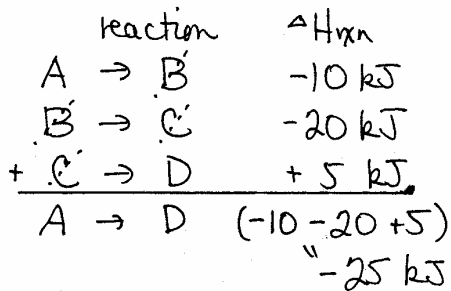 reaction ΔHrxn
A → B -10 kJ
B → C -20 kJ
+ C → D + 5 kJ
A → D (-10 -20 +5)
" -25 kJ